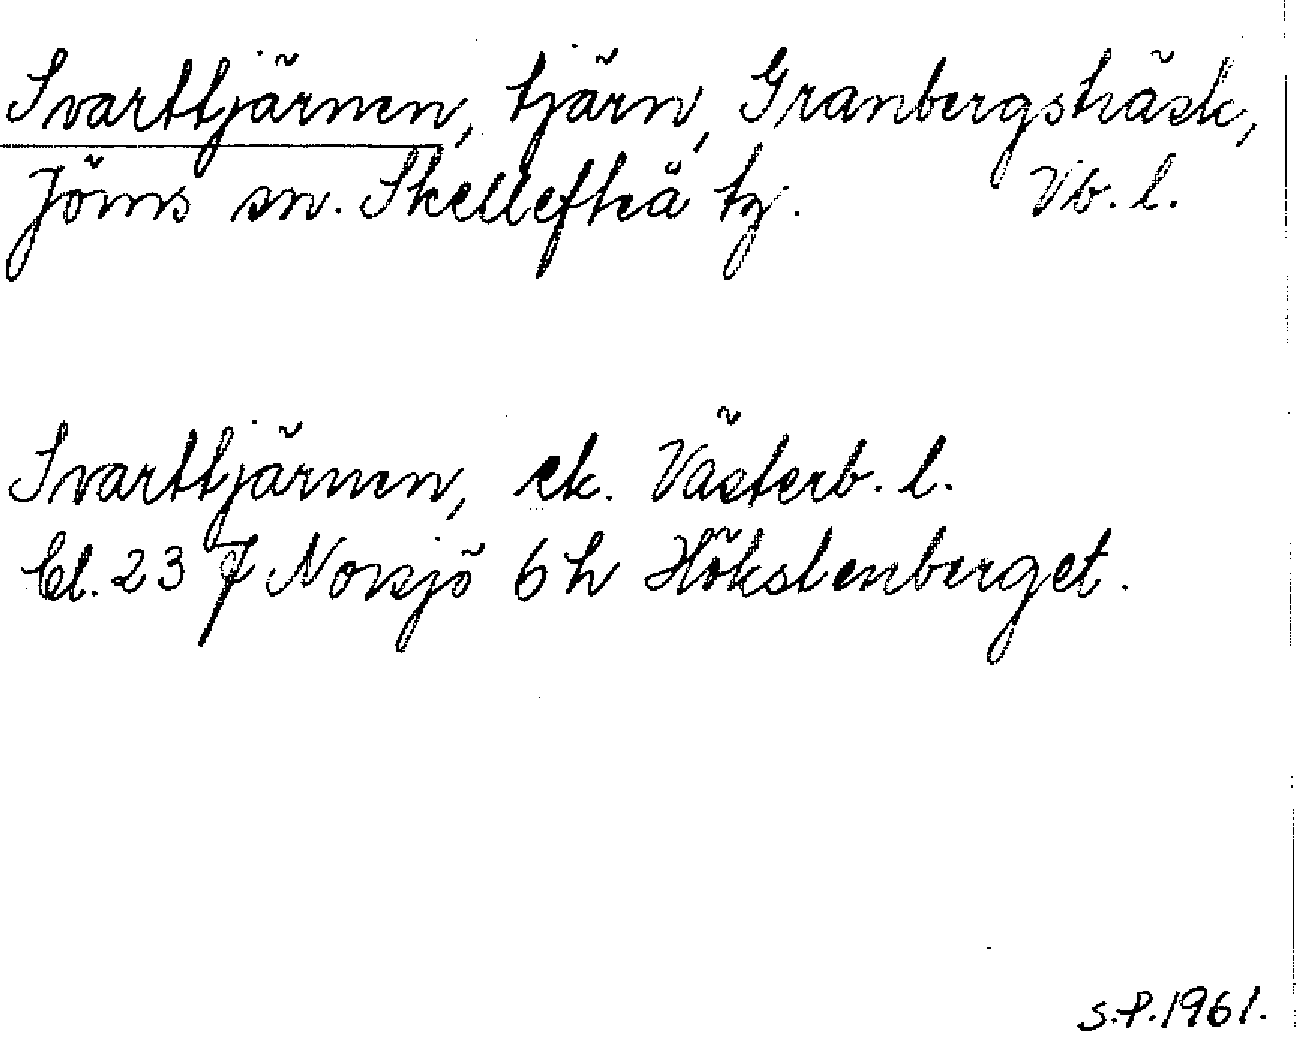 Svarttjärnen, tjärn, Granbergsträsk,
Jörns sn. Skellefteå tg. Vb. l.
Svarttjärnen, ek. Västerb. l.
Bl. 23 J Norsjö 6 h Hökstenberget.
S.P. 1961.